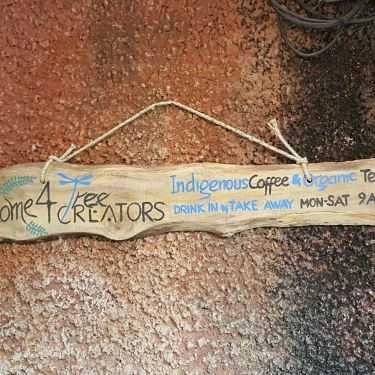 ome 4 Tree CREATORS
Indigenous Coffee & Organic Te
DRINK IN or TAKE AWAY MON-SAT 9A